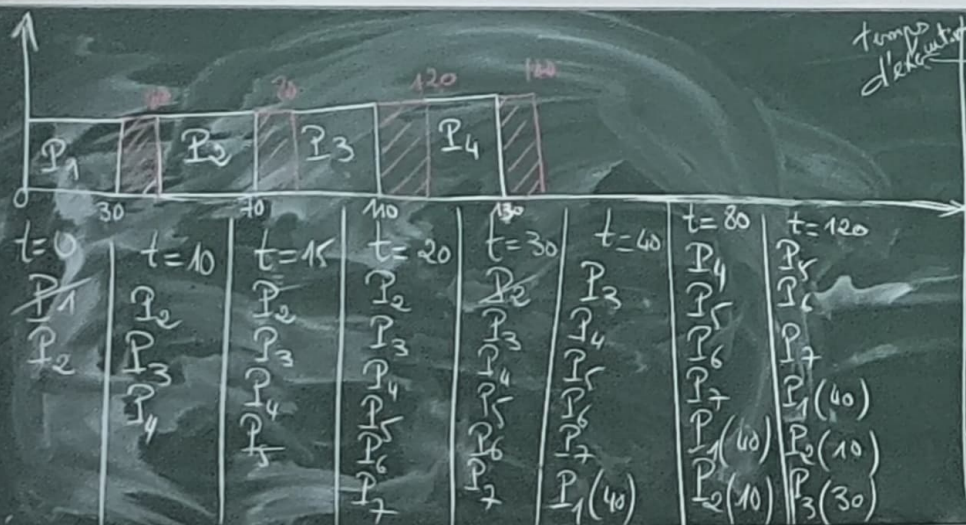 temps
d'exécution
120
P1
P2
P3
P4
0
30
70
110
130
t=0
P1
P2
t=10
P2
P3
P4
t=15
P2
P3
P4
P5
t=20
P2
P3
P4
P5
P6
P7
t=30
P2
P3
P4
P5
P6
P7
t=40
P3
P4
P5
P6
P7
P1(40)
t=80
P4
P5
P6
P7
P1(40)
P2(10)
t=120
P5
P6
P7
P1(40)
P2(10)
P3(30)